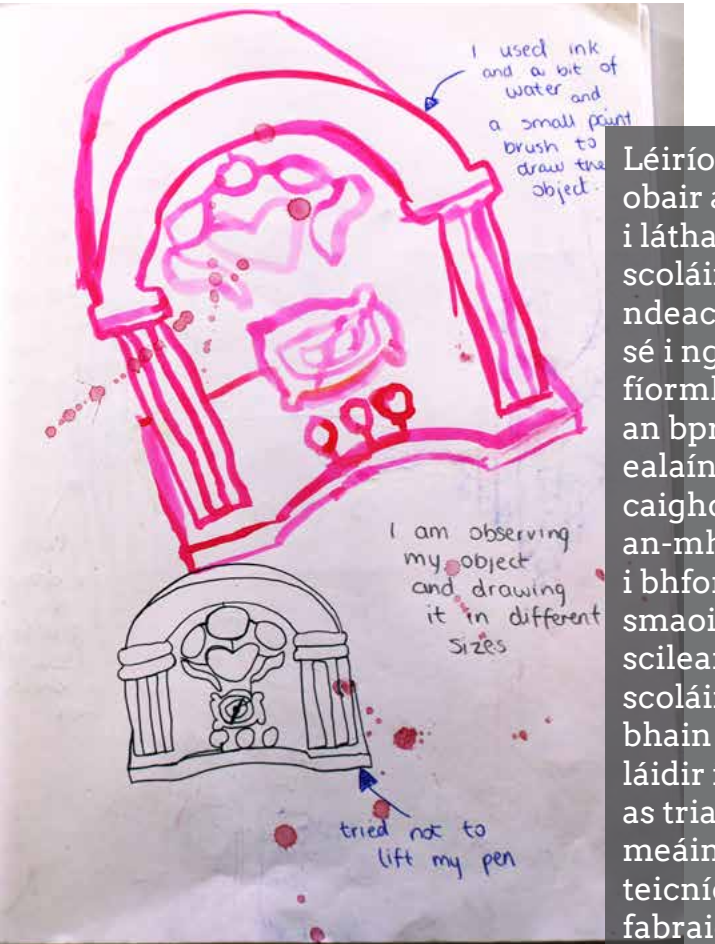 I used ink
and a bit of
water and
a small paint
brush to
draw the
object.
I am observing
my object
and drawing
it in different
sizes
tried not to
lift my pen
Léirío
obair a
i látha
scoláir
ndeac
sé i ng
fíorml
an bpr
ealaín
caighd
an-mh
i bhfor
smaoi
scilean
scoláir
bhain
láidir
as tria
meáin
teicníc
fabrai